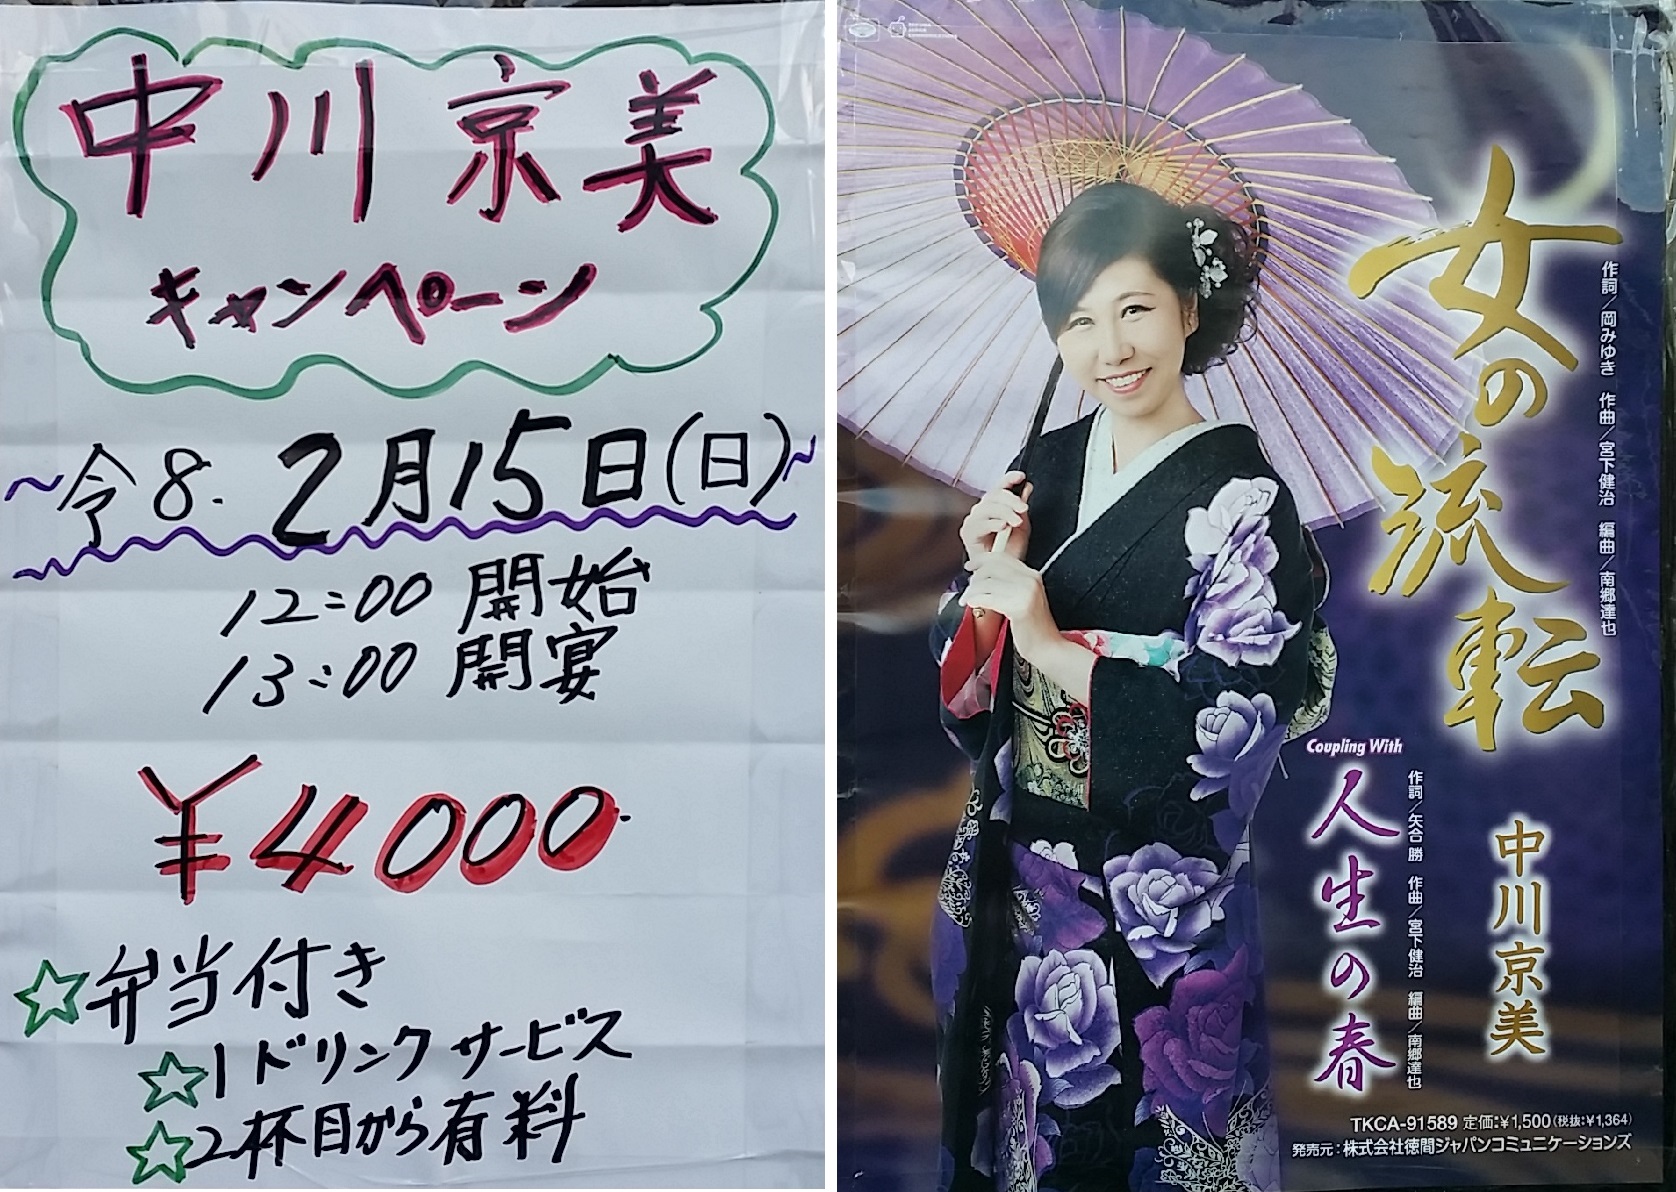 中川京美
キャンペーン
令8. 2月15日(日)
12:00 開始
13:00 開宴
¥4000.
☆弁当付き
☆1ドリンクサービス
☆2杯目から有料
女の流転
作詞/岡みゆき 作曲/宮下健治 編曲/南郷達也
Coupling With
人生の春
作詞/矢合 勝 作曲/宮下健治 編曲/南郷達也
中川京美
TKCA-91589 定価:¥1,500(税抜:¥1,364)
発売元:株式会社徳間ジャパンコミュニケーションズ